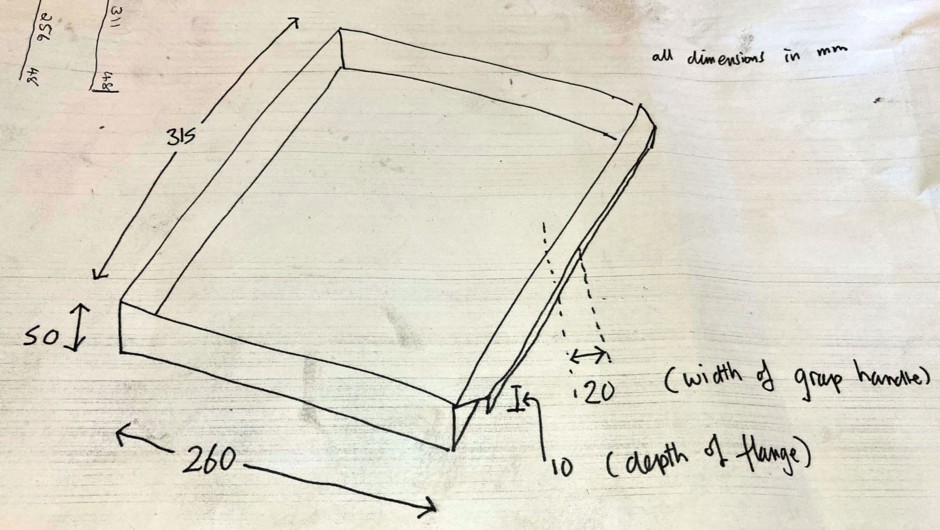 311 48
256 48
all dimensions in mm
315
50
20 (width of grap handle)
260
10 (depth of flange)